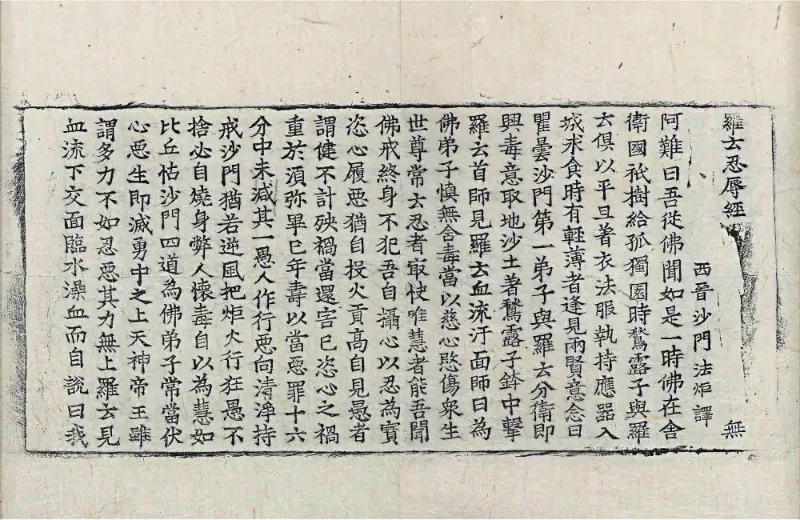 羅云忍辱經 無
西晉沙門法炬譯
阿難曰吾從佛聞如是一時佛在舍
衛國祇樹給孤獨園時鶖露子與羅
云俱以平旦著衣法服執持應器入
城求食時有輕薄者逢見兩賢意念曰
瞿曇沙門第一弟子與羅云分衛即
興毒意取地沙土著鶖露子鉢中擊
羅云首師見羅云血流汙面師曰為
佛弟子慎無含毒當以慈心愍傷衆生
世尊常云忍者冣快唯慧者能吾聞
佛戒終身不犯吾自攝心以忍為寶
恣心履惡猶自投火貢高自見愚者
謂健不計殃禍當還害已恣心之禍
重於湏弥畢已年壽以當惡罪十六
分中未減其一愚人作行惡向清淨持
戒沙門猶若逆風把炬火行狂愚不
捨必自燒身弊人懷毒自以為慧如
比丘怙沙門四道為佛弟子常當伏
心惡生即滅勇中之上天神帝王雖
謂多力不如忍惡其力無上羅云見
血流下交面臨水澡血而自說曰我